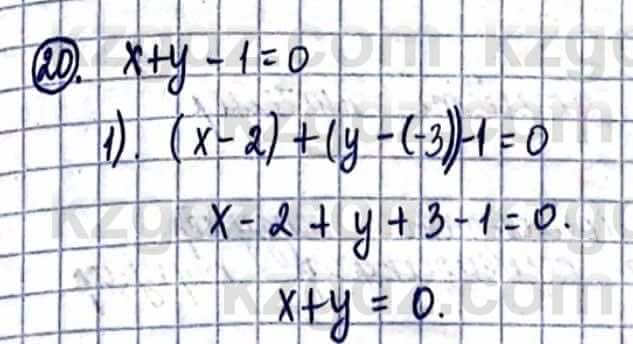 20. x+y-1=0
1). (x-2)+(y-(-3))-1=0
x-2+y+3-1=0.
x+y=0.